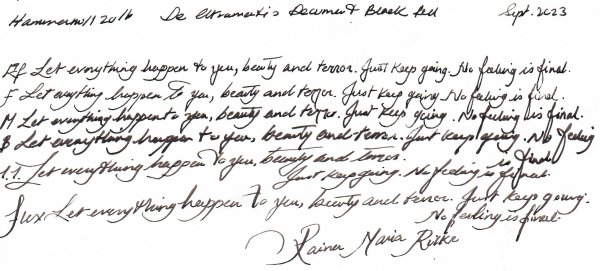 Hammermill 20lb De Atramentis Document Black Red Sept. 2023
Ef Let everything happen to you, beauty and terror. Just keep going. No feeling is final.
F Let everything happen to you, beauty and terror. Just keep going. No feeling is final.
M Let everything happen to you, beauty and terror. Just keep going. No feeling is final.
B Let everything happen to you, beauty and terror. Just keep going. No feeling
is final.
1.1. Let everything happen to you, beauty and terror.
Just keep going. No feeling is final.
Flex Let everything happen to you, beauty and terror. Just keep going.
No feeling is final.
Rainer Maria Rilke